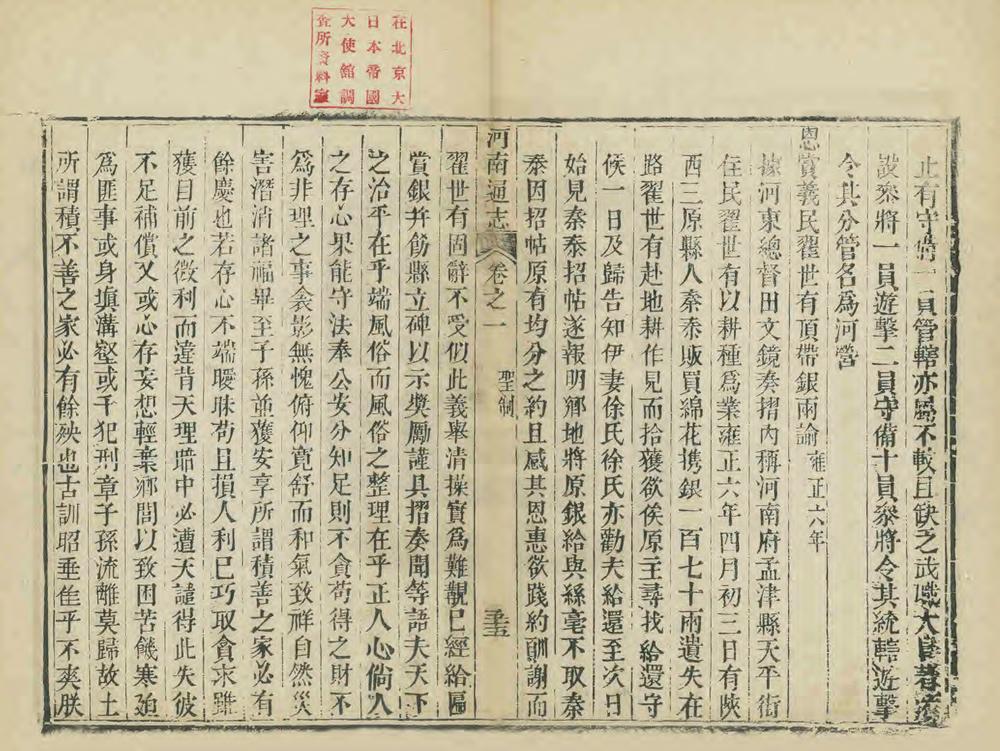 在北京大
日本帝國
大使館調
查所資料室
止有守備一員管轄亦屬不較且缺乏武職大員著
設叅將一員遊擊二員守備十員叅將令其統轄遊擊
令其分管名為河營
恩賞義民翟世有頂帶銀兩諭 雍正六年
據河東總督田文鏡奏摺內稱河南府孟津縣天平街
住民翟世有以耕種為業雍正六年四月初三日有陝
西三原縣人秦泰販買綿花携銀一百七十兩遺失在
路翟世有赴地耕作見而拾獲欲俟原主尋找給還守
候一日及歸告知伊妻徐氏徐氏亦勸夫給還至次日
始見秦泰招帖遂報明鄉地將原銀給與絲毫不取秦
泰因招帖原有均分之約且感其恩惠欲踐約酬謝而
河南通志 卷之一 聖制 三十五
翟世有固辭不受似此義舉清操實為難覯已經給匾
賞銀并飭縣立碑以示獎勵謹具摺奏聞等語夫天下
之治平在乎端風俗而風俗之整理在乎正人心倘人
之存心果能守法奉公安分知足則不貪苟得之財不
為非理之事矣影無愧俯仰寬舒而和氣致祥自然災
害潛消諸福畢至子孫並獲安享所謂積善之家必有
餘慶也若存心不端曖昧苟且損人利己巧取貪求雖
獲目前之微利而違昔天理暗中必遭天譴得此失彼
不足補償又或心存妄想輕棄鄉閭以致困苦饑寒廹
為匪事或身填溝壑或干犯刑章子孫流離莫歸故土
所謂積不善之家必有餘殃也古訓昭垂隹乎不爽朕